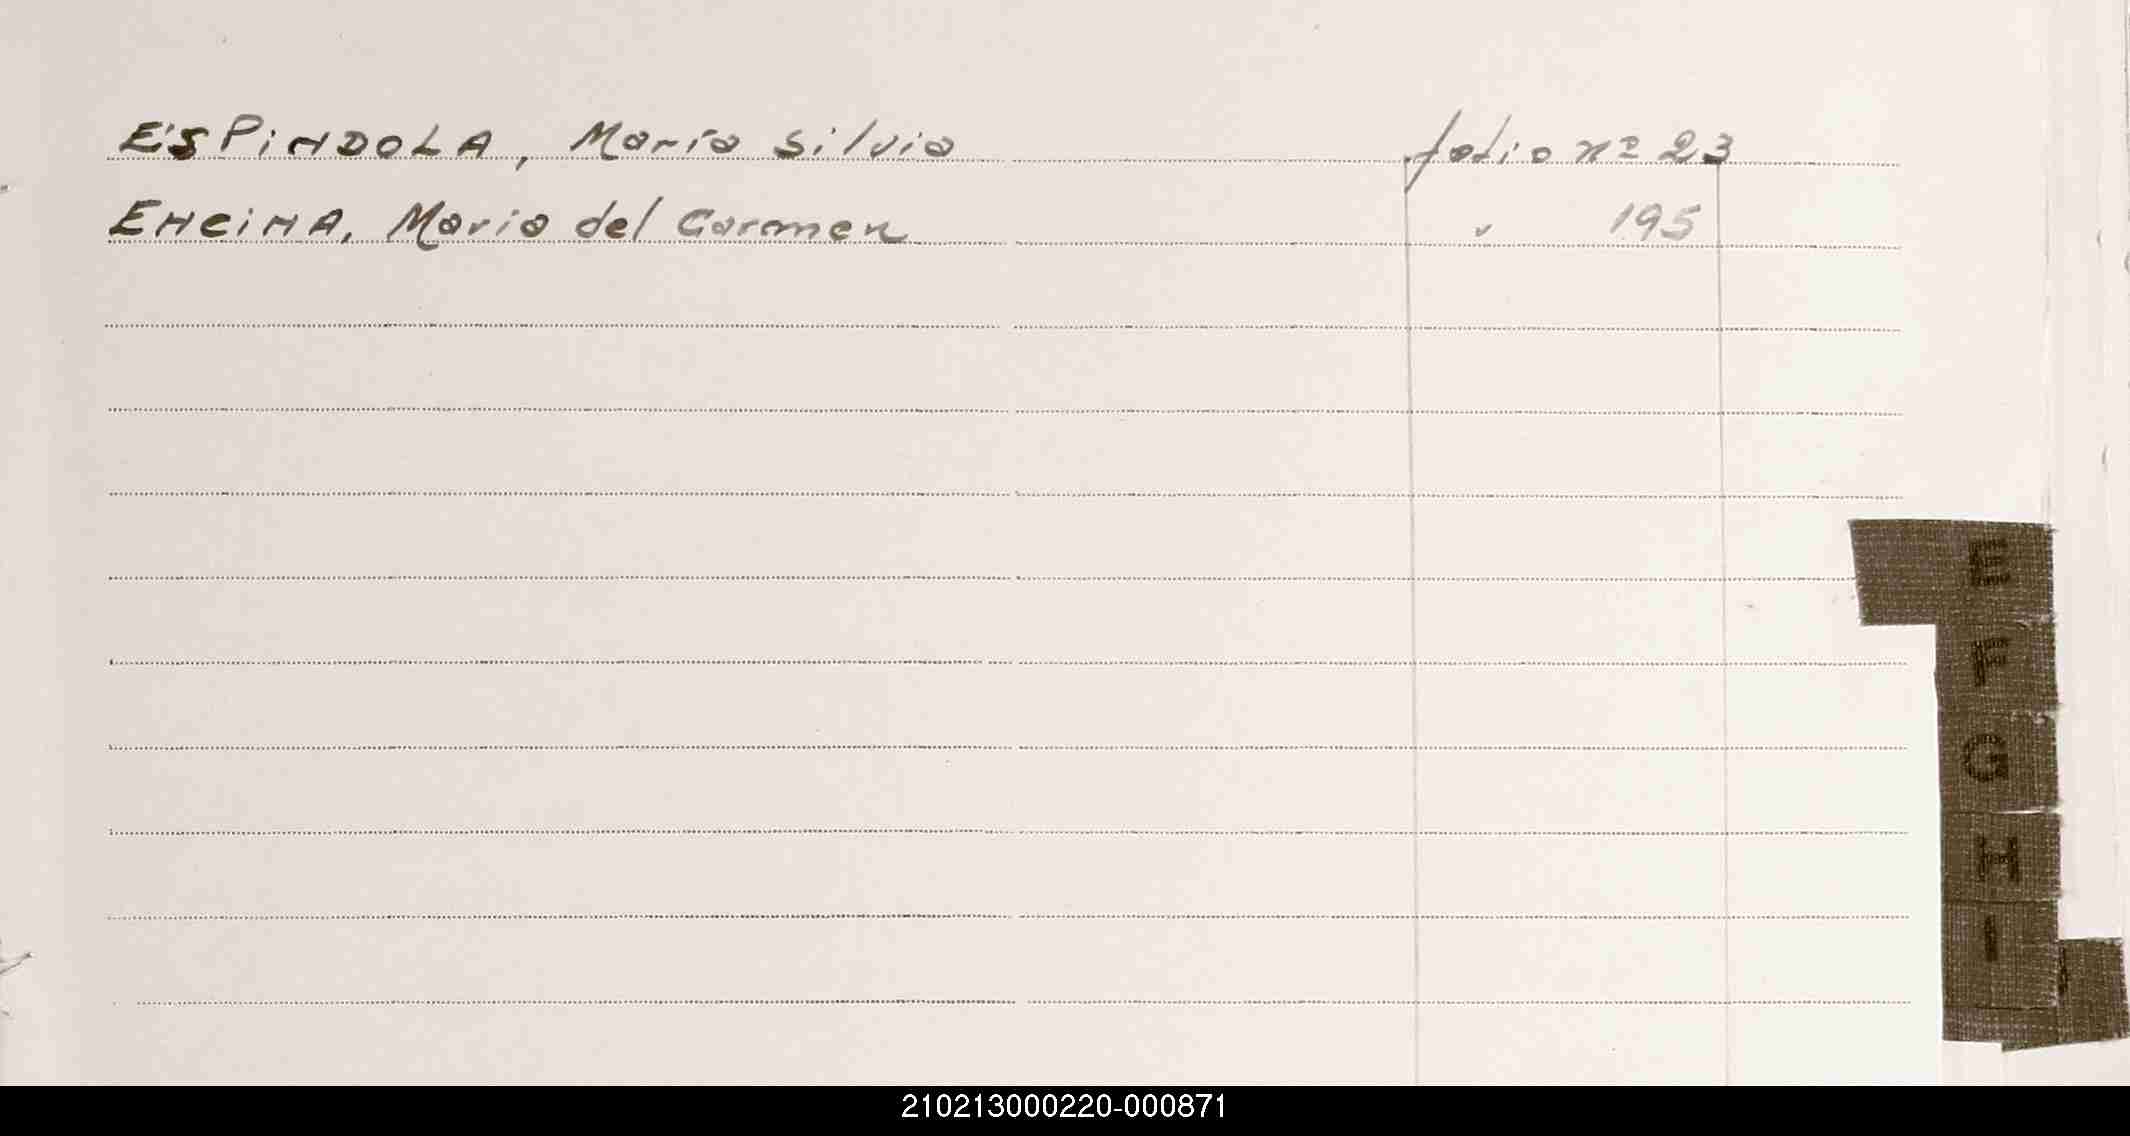 ESPINDOLA, María Silvia folio nº 23
ENCINA, María del Carmen " 195
E
F
G
H
I
210213000220-000871